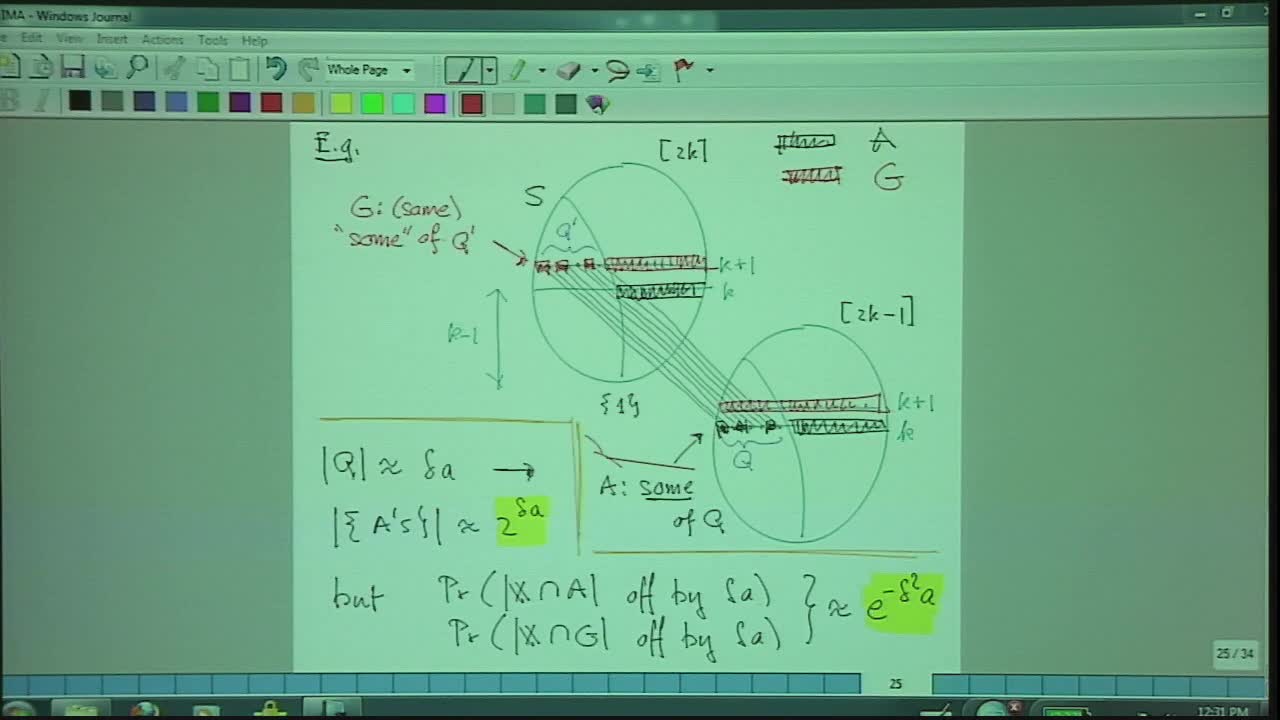 IMA - Windows Journal
Edit View Insert Actions Tools Help
Whole Page
E.g.
[2k]
A
G
S
G: (same)
"some" of Q'
Q'
k+1
k
k-1
[2k-1]
{1}
k+1
k
Q
A: some
of Q
|Q| ≈ δa →
|{A's}| ≈ 2^δa
but Pr(|X∩A| off by δa)
Pr(|X∩G| off by δa)
} ≈ e^-δ²a
25 / 34
25
12:31 PM